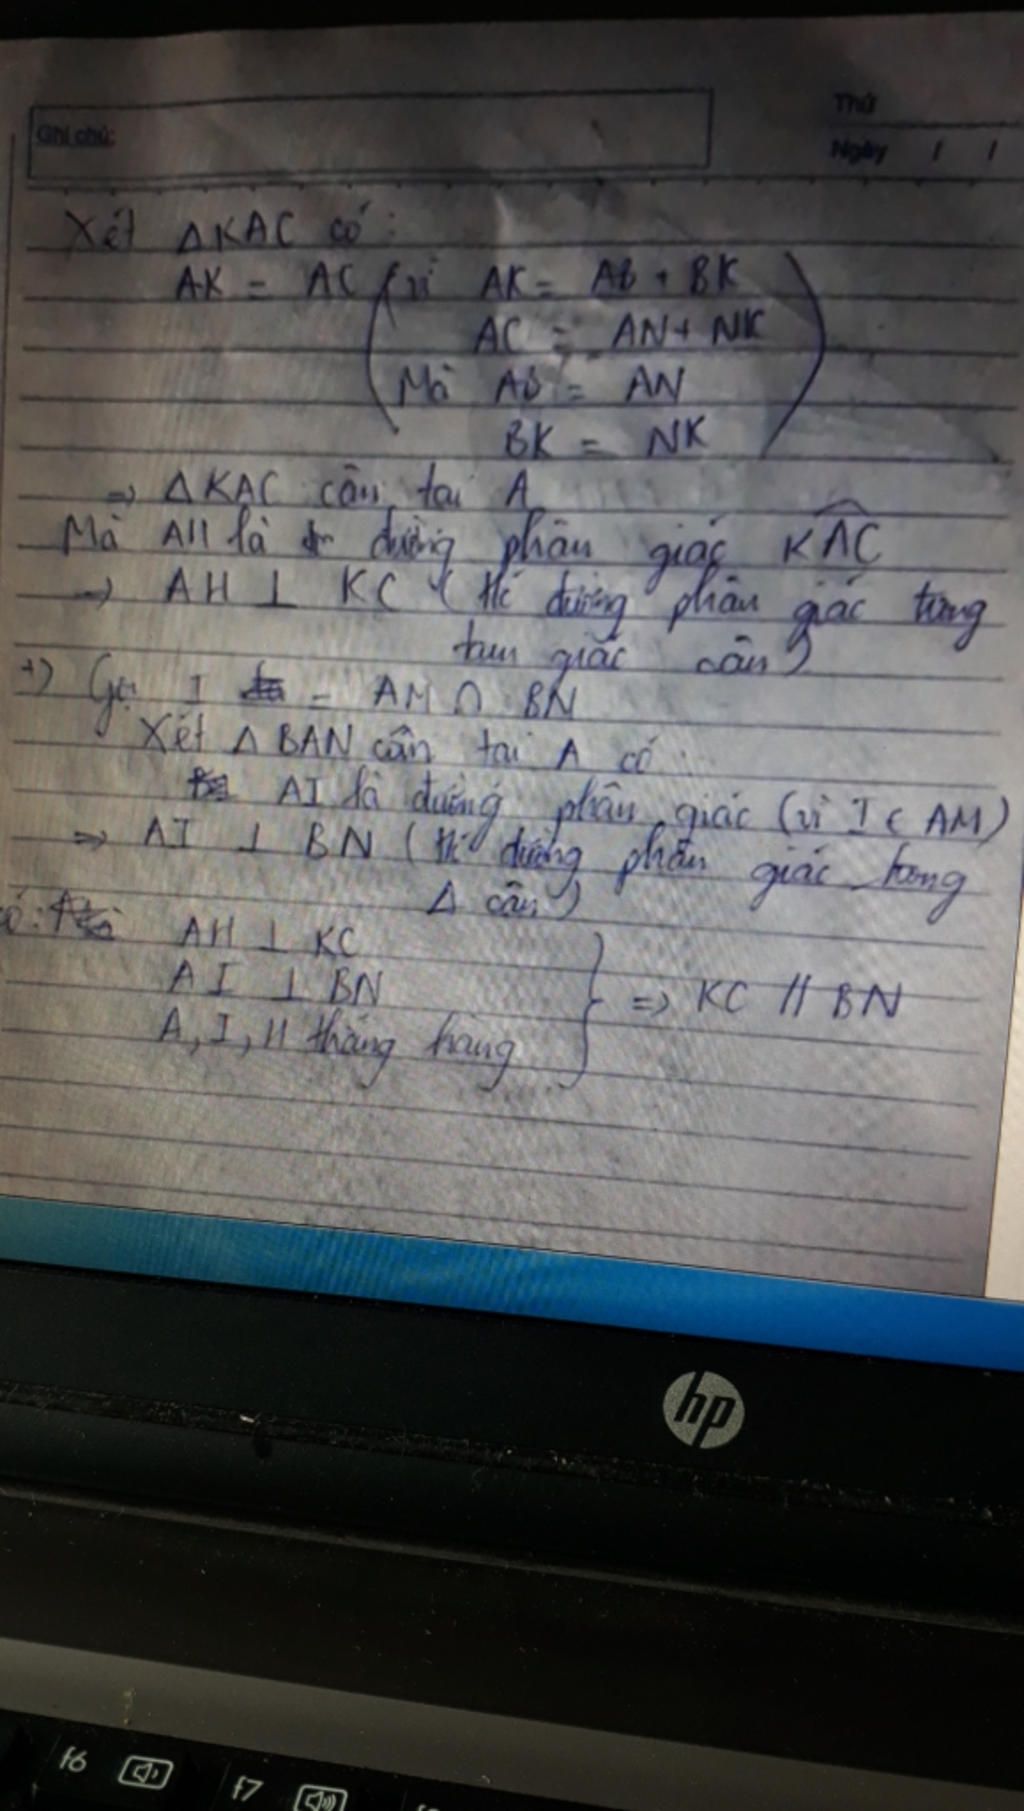 Ghi chú:
Thứ
Ngày / /
Xét ΔKAC có:
AK = AC (vì AK = AB + BK
AC = AN + NK
Mà AB = AN
BK = NK)
=> ΔKAC cân tại A
Mà AH là đường phân giác KAC
-> AH ⊥ KC (t/c đường phân giác trong
tam giác cân)
+) Gọi I = AM ∩ BN
Xét ΔBAN cân tại A có:
AI là đường phân giác (vì I ∈ AM)
=> AI ⊥ BN (t/c đường phân giác trong
Δ cân)
AH ⊥ KC
AI ⊥ BN } => KC // BN
A, I, H thẳng hàng
hp
f6
f7